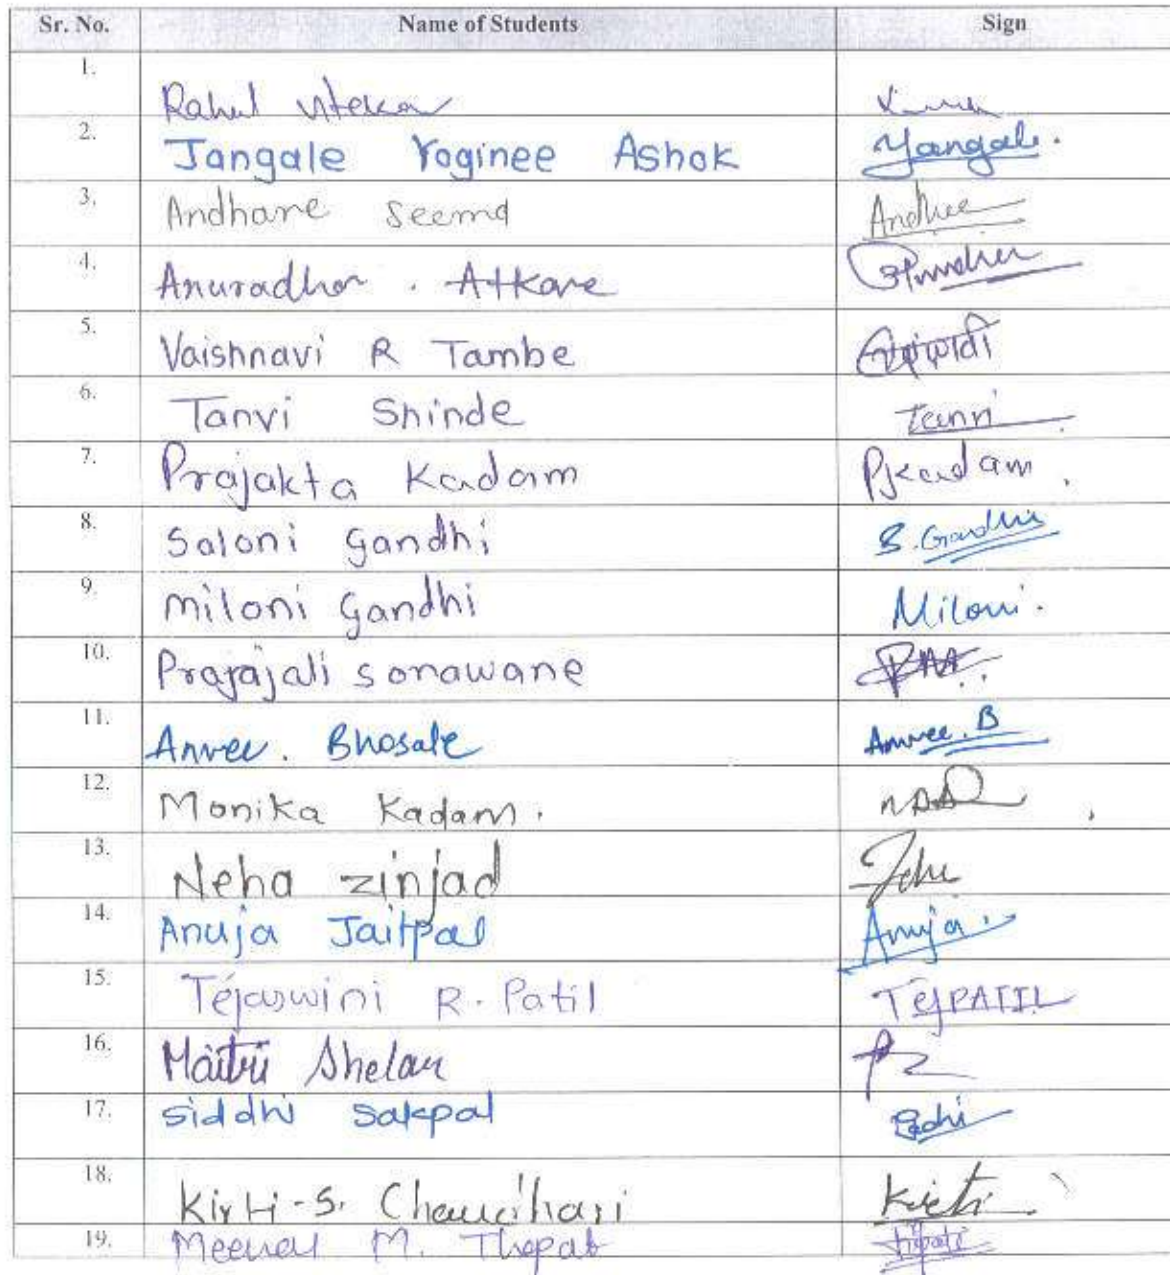 Sr. No. Name of Students Sign
1. Rahul Utekar
2. Jangale Yoginee Ashok Yangale.
3. Andhare Seema
4. Anuradha . Atkare
5. Vaishnavi R Tambe
6. Tanvi Shinde Tanvi
7. Prajakta Kadam Pjkadam.
8. Saloni Gandhi S. Gandhi
9. Miloni Gandhi Miloni.
10. Prajajali sonawane
11. Anvee. Bhosale Anvee. B
12. Monika Kadam.
13. Neha zinjad
14. Anuja Jaitpal Anuja.
15. Tejaswini R. Patil TEJPATIL
16. Maitri Shelar
17. Siddhi Sakpal
18. Kirti-S. Chaudhari Kirti
19. Meenal M. Thopat